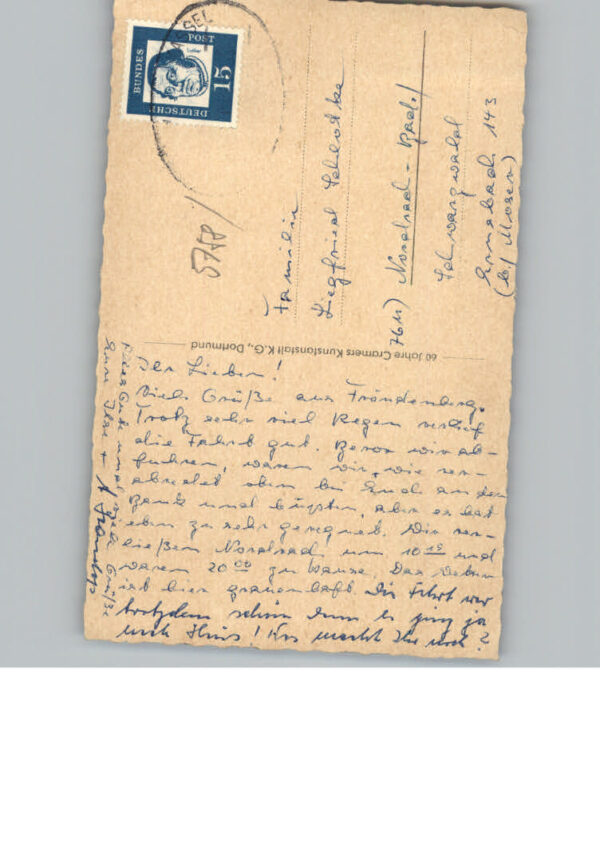 DEUTSCHE
BUNDES
POST
15
SSEL
Familie
Siegfried
7611) Nordrach - Bad./
Schwarzwald
Ernsbach 143
(b/ Moser)
60 Jahre Cramers Kunstanstalt K.G., Dortmund
Ihr Lieben!
Viele Grüße aus Fröndenberg.
Trotz sehr viel Regen verlief
die Fahrt gut. Bevor wir ab-
fuhren, waren wir, wie ver-
abredet oben bei Euch an der
Bank und hupten, aber es hat
eben zu sehr geregnet. Wir ver-
ließen Nordrach um 10 15 und
waren 20 00 zu Hause. Das Wetter
ist hier grauenhaft. Die Fahrt war
trotzdem schön denn es ging ja
nach Haus! Was macht Ihr noch?
Alles Gute und viele Grüße
Eure Ilse +